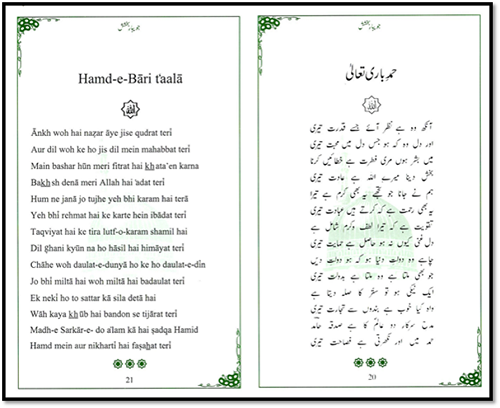 Hamd-e-Bāri ṫaalā
Ānkh woh hai naẓar āye jise qudrat terī
Aur dil woh ke ho jis dil mein mahabbat terī
Main bashar hūn meri fitrat hai khata'en karna
Bakhsh denā meri Allah hai 'adat terī
Hum ne janā jo tujhe yeh bhi karam hai terā
Yeh bhī rehmat hai ke karte hein ibādat terī
Taqviyat hai ke tira lutf-o-karam shamil hai
Dil ghani kyūn na ho hāsil hai himāyat terī
Chāhe woh daulat-e-dunyā ho ke ho daulat-e-dīn
Jo bhī miltā hai woh miltā hai badaulat terī
Ek nekī ho to sattar kā sila detā hai
Wāh kaya khūb hai bandon se tijārat terī
Madh-e Sarkār-e- do a'lam kā hai ṣadqa Hamid
Hamd mein aur nikhartī hai faṣaḥat terī
21
حمدِ باری تعالیٰ
آنکھ وہ ہے نظر آئے جسے قدرت تیری
اور دل وہ کہ ہو جس دل میں محبت تیری
میں بشر ہوں مری فطرت ہے خطائیں کرنا
بخش دینا میرے اللہ ہے عادت تیری
ہم نے جانا جو تجھے یہ بھی کرم ہے تیرا
یہ بھی رحمت ہے کہ کرتے ہیں عبادت تیری
تقویت ہے کہ ترا لطف و کرم شامل ہے
دل غنی کیوں نہ ہو حاصل ہے حمایت تیری
چاہے وہ دولتِ دنیا ہو کہ ہو دولتِ دیں
جو بھی ملتا ہے وہ ملتا ہے بدولت تیری
ایک نیکی ہو تو ستر کا صلہ دیتا ہے
واہ کیا خوب ہے بندوں سے تجارت تیری
مدحِ سرکارِ دو عالم کا ہے صدقہ حامد
حمد میں اور نکھرتی ہے فصاحت تیری
20